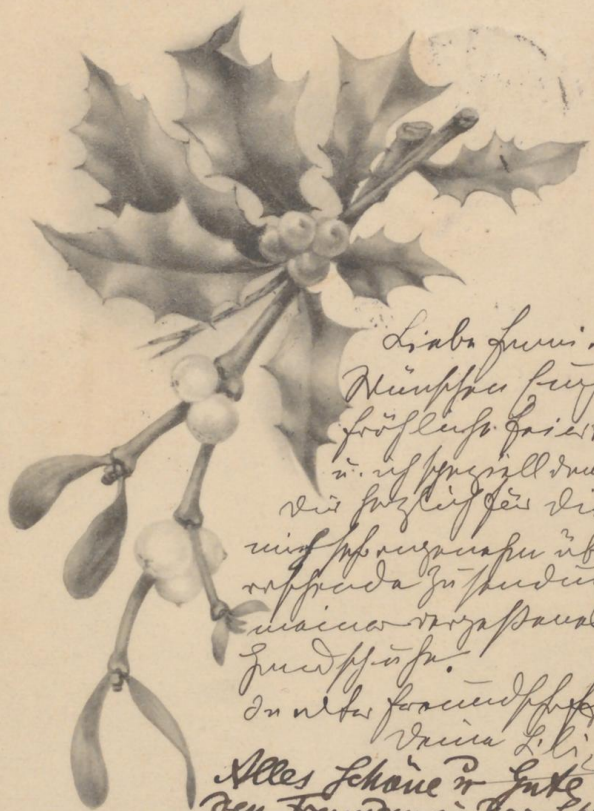 Liebe Fanni.
Wünschen Euch
fröhliche Feier
u. ich speziell dan
Dir herzlich für die
mich sehr angenehm üb
raschende Zusendun
meiner vergessenen
Handschuhe.
In alter Freundschaft
Deine Lili
Alles Schöne u Gute